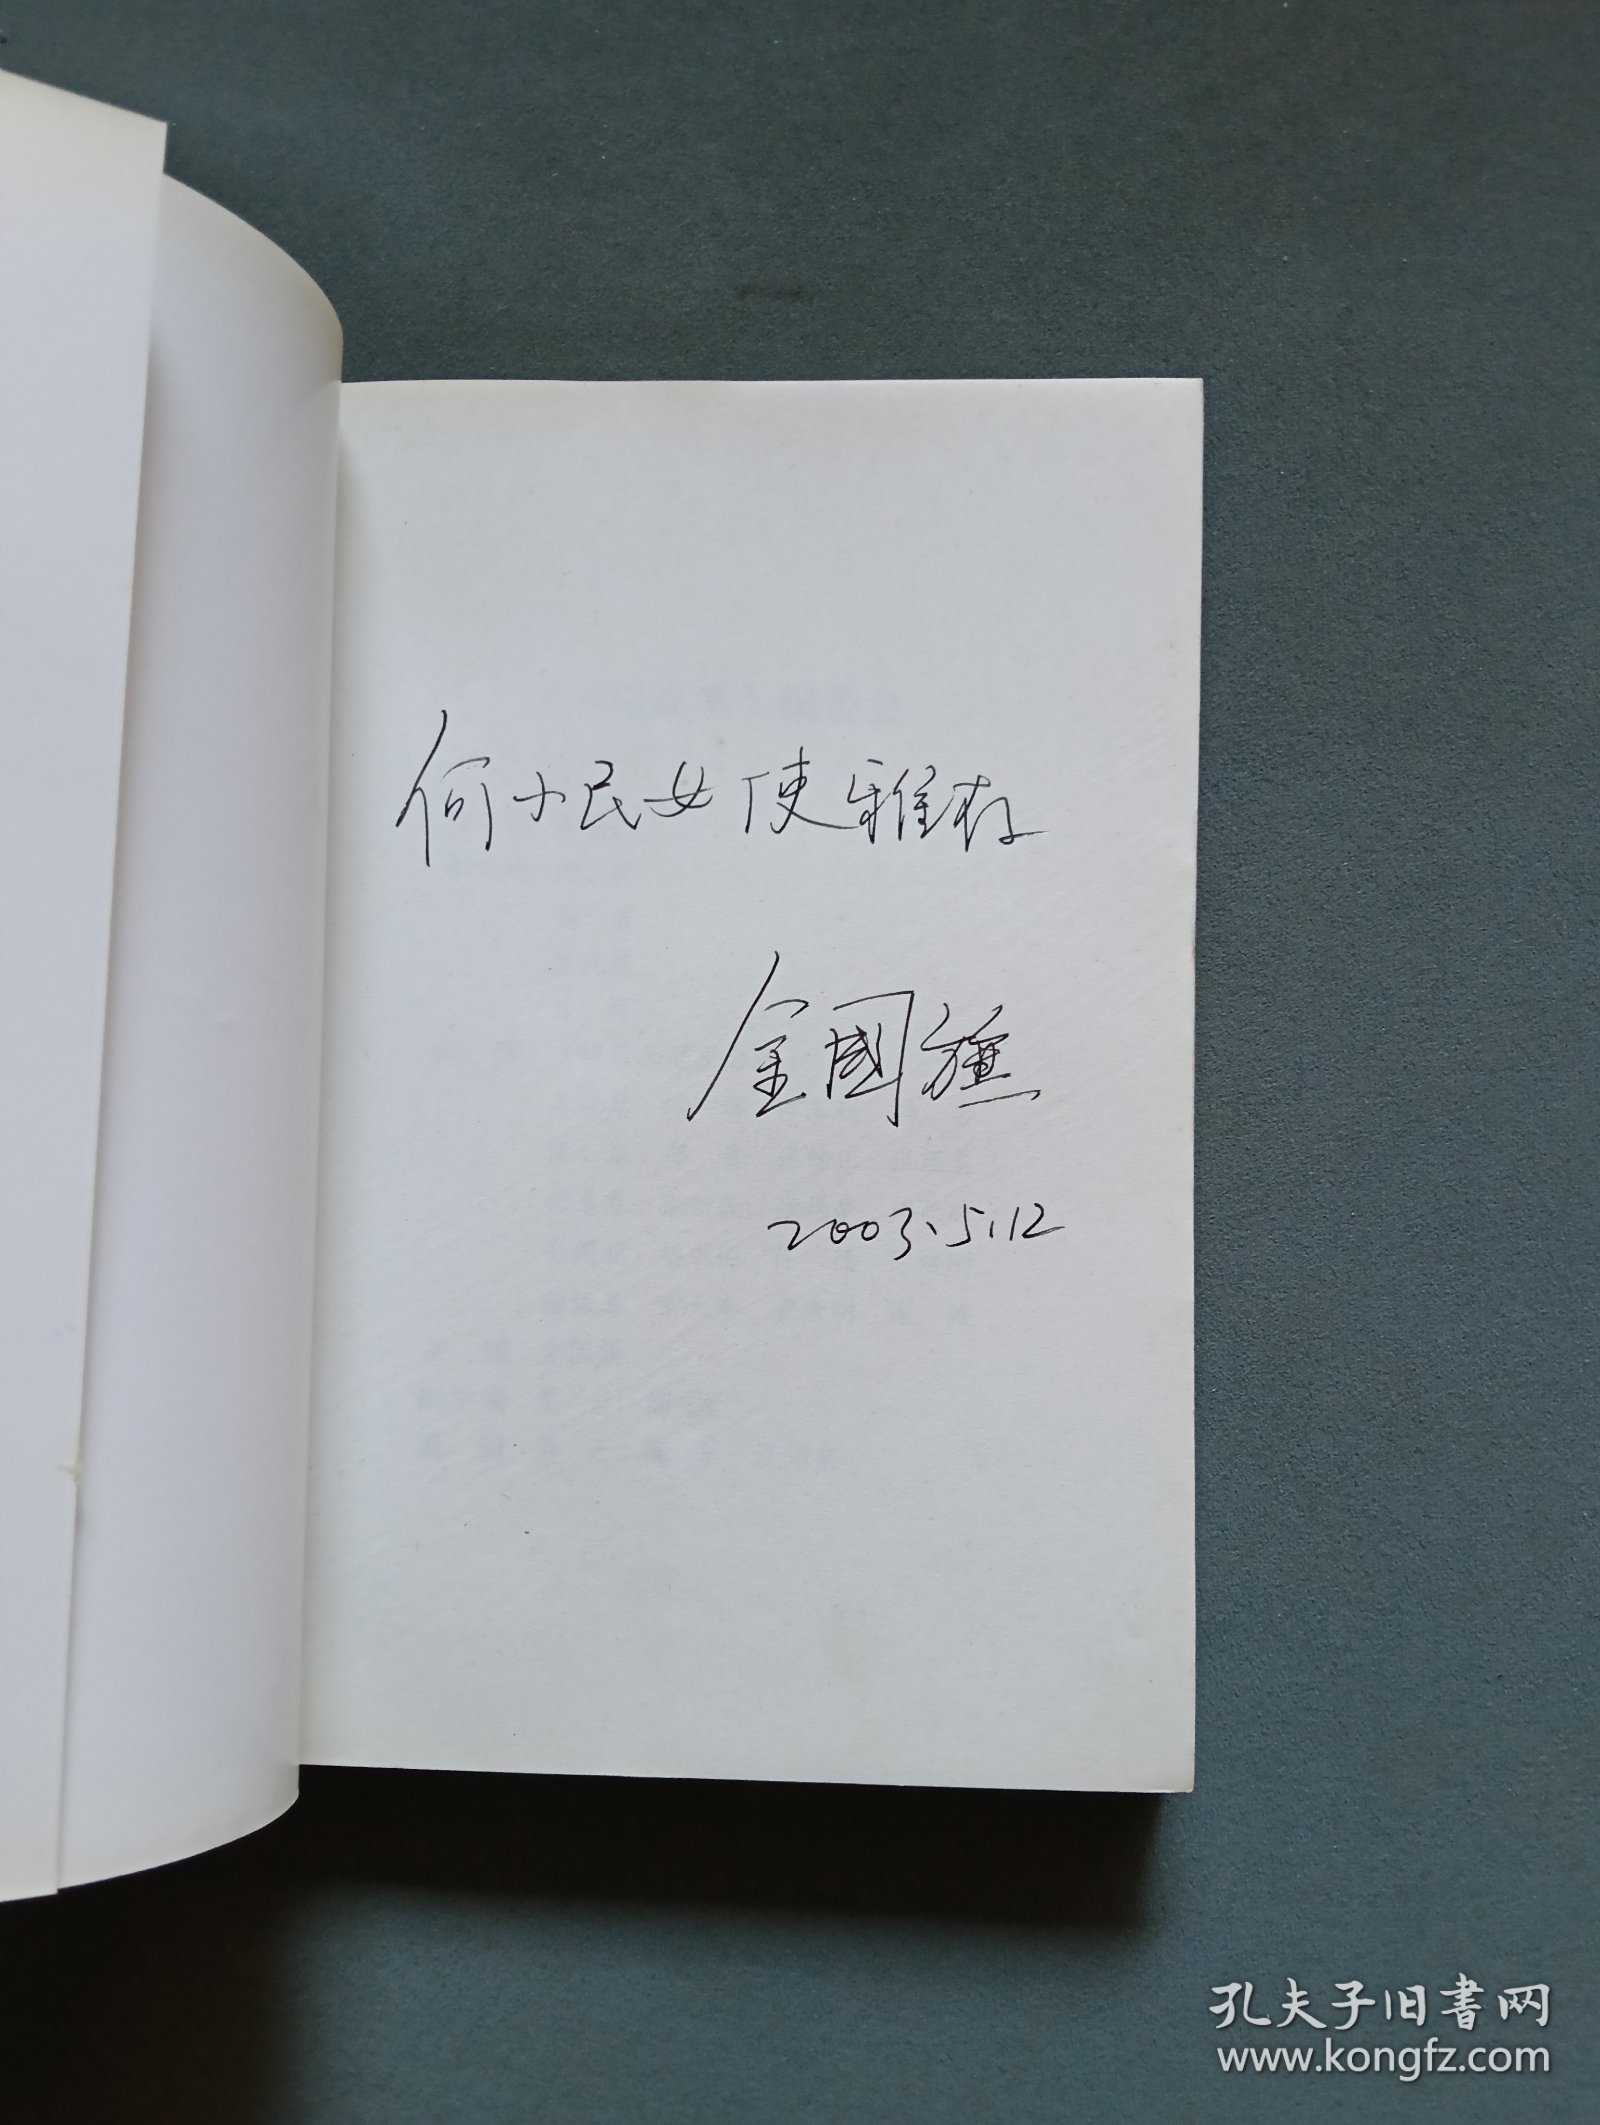 何小民女使雅存
金國旗
2003.5.12
孔夫子旧書网
www.kongfz.com